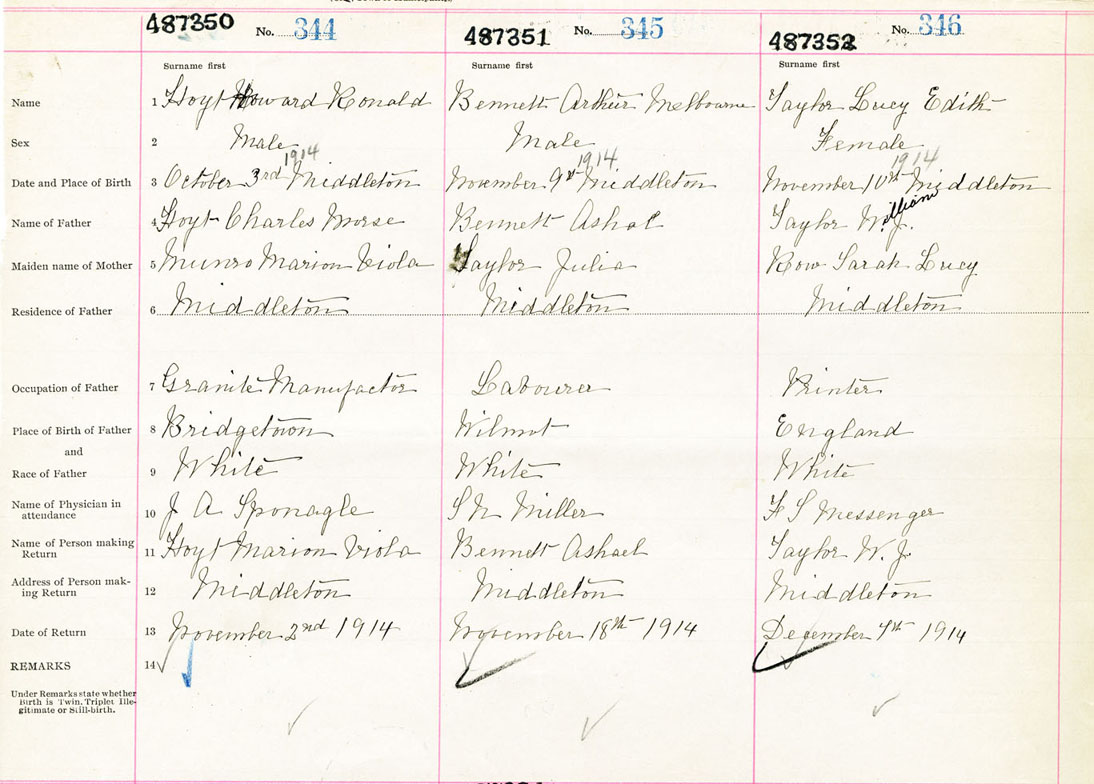 487350 No. 344 487351 No. 345 487352 No. 346
Surname first Surname first Surname first
Name 1 Hoyt Howard Ronald Bennett Arthur Melbourne Taylor Lucy Edith
Sex 2 Male Male Female
1914 1914 1914
Date and Place of Birth 3 October 3rd Middleton November 9th Middleton November 10th Middleton
Name of Father 4 Hoyt Charles Morse Bennett Ashal Taylor W. William J.
Maiden name of Mother 5 Munro Marion Viola Taylor Julia Row Sarah Lucy
Residence of Father 6 Middleton Middleton Middleton
Occupation of Father 7 Granite Manufactor Labourer Printer
Place of Birth of Father 8 Bridgetown Wilmot England
and
Race of Father 9 White White White
Name of Physician in
attendance 10 J A Sponagle S N Miller F S Messenger
Name of Person making
Return 11 Hoyt Marion Viola Bennett Ashael Taylor W. J.
Address of Person mak-
ing Return 12 Middleton Middleton Middleton
Date of Return 13 November 2nd 1914 November 18th 1914 December 4th 1914
REMARKS 14
Under Remarks state whether
Birth is Twin, Triplet Ille-
gitimate or Still-birth.